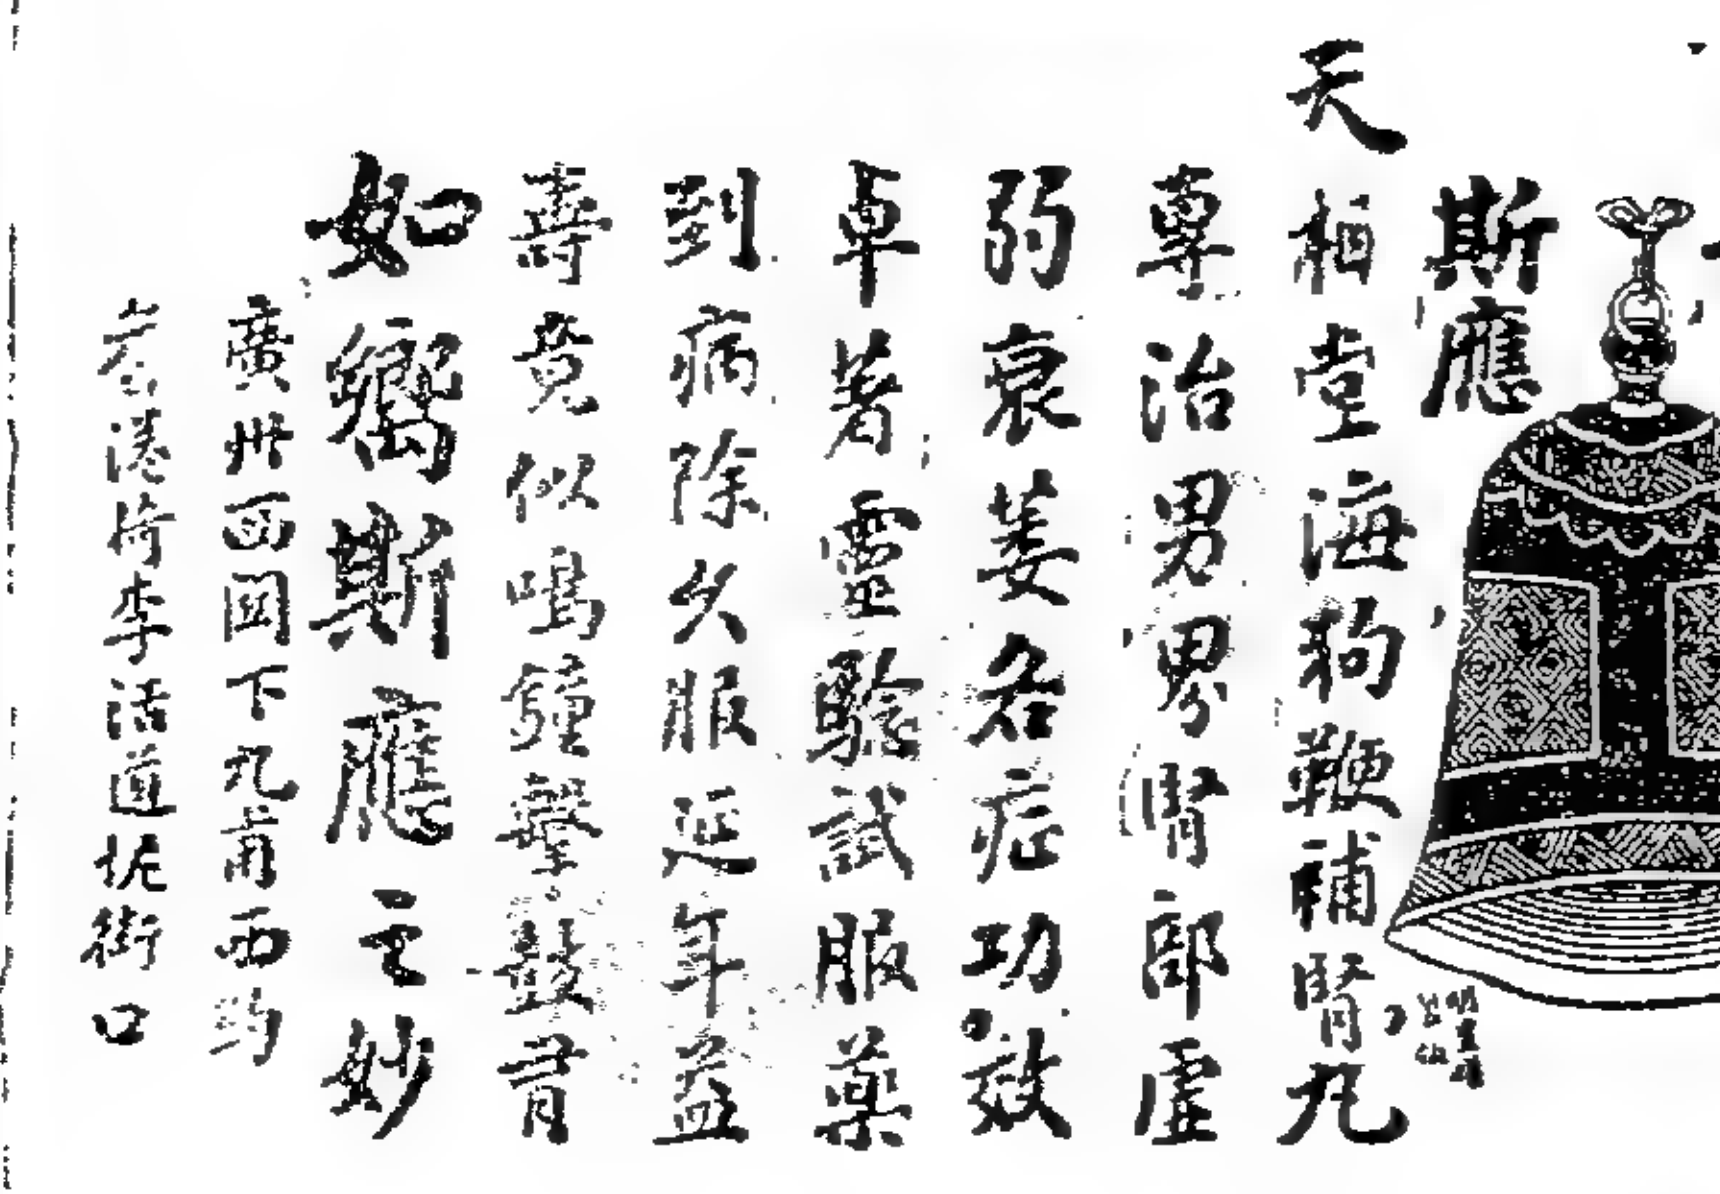 斯應
天相堂海狗鞭補腎丸
專治男界腎部虛
弱衰萎各症功效
卓著靈驗試服藥
到病除久服延年益
壽竟似鳴鐘擊鼓皆
如響斯應之妙
廣州西關下九甫西約
香港埼李活道坭街口